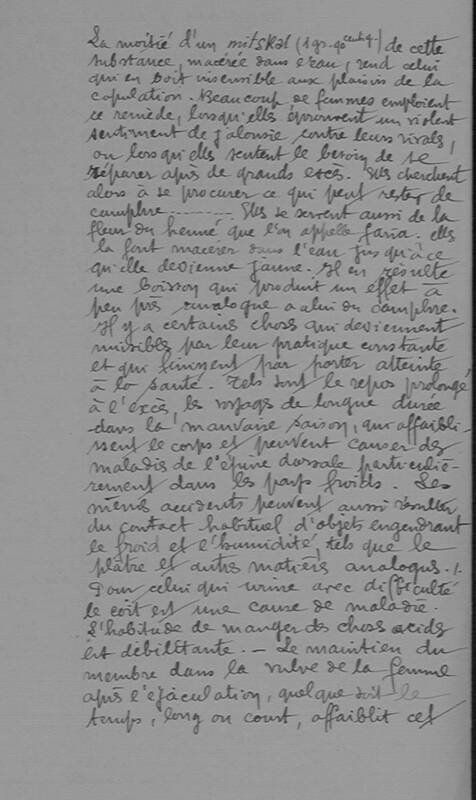 La moitié d'un mitskal (1 gr. 90 centig.) de cette
substance, macérée dans l'eau, rend celui
qui en boit insensible aux plaisirs de la
copulation. Beaucoup de femmes emploient
ce remède, lorsqu'elles éprouvent un violent
sentiment de jalousie contre leurs rivals,
ou lorsqu'elles sentent le besoin de se
réparer après de grands excès. Elles cherchent
alors à se procurer ce qui peut rester de
camphre ........... Elles se servent aussi de la
fleur du henné que l'on appelle faria. elles
la font macérer dans l'eau jusqu'à ce
qu'elle devienne jaune. Il en résulte
une boisson qui produit un effet à
peu près analogue a celui du camphre.
Il y a certains choses qui deviennent
nuisibles par leur pratique constante
et qui finissent par porter atteinte
à la santé. Tels sont le repos prolongé
à l'excès, les voyages de longue durée
dans la mauvaise saison, qui affaibli-
ssent le corps et peuvent causer des
maladis de l'épine dorsale particuliè-
rement dans les pays froids. Les
mêmes accidents peuvent aussi résulter
du contact habituel d'objets engendrant
le froid et l'humidité, tels que le
plâtre et autres matières analogus. /.
Pour celui qui urine avec difficulté
le coït est une cause de maladie.
L'habitude de manger des choses acids
est débilitante. — Le maintien du
membre dans la vulve de la femme
après l'éjaculation, quelque soit le
temps, long ou court, affaiblit cet